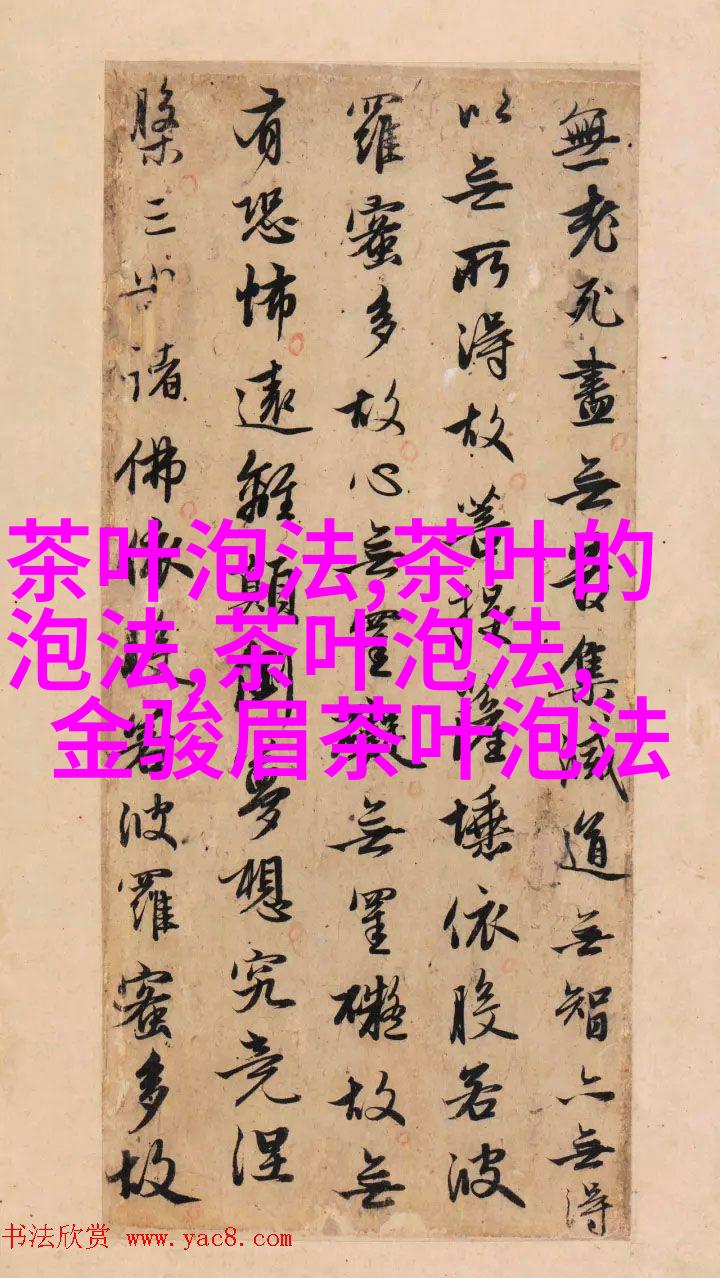 無老死盡无苦集滅道无智亦無得
以无所得故菩提薩埵依般若波
羅蜜多故心无罣礙无罣礙故无
有恐怖遠離顛倒夢想究竟涅
槃三世諸佛依般若波羅蜜多故
茶叶泡法,茶叶的
泡法,茶叶泡法,
金骏眉茶叶泡法
书法欣赏 www.yac8.com